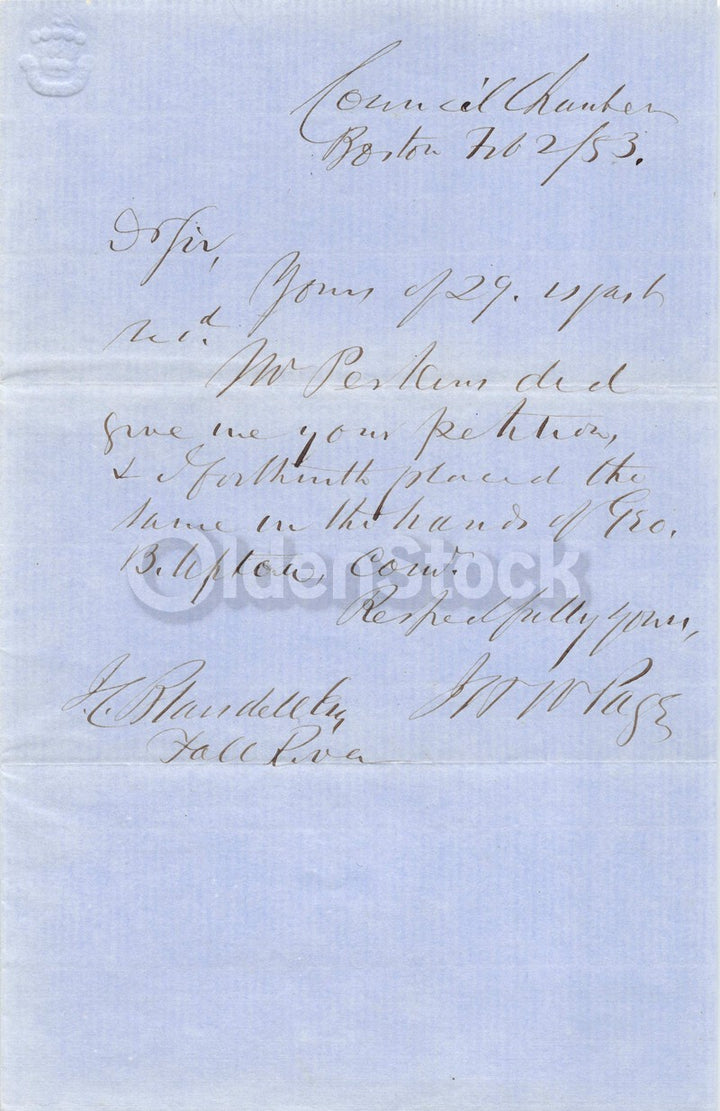 Council Chamber
Boston Feb 2/53.
Dr Sir,
Yours of 29. is just
recd.
Mr Perkins did
give me your petition,
& I forthwith placed the
same in the hands of Geo.
B. Upton, Comr.
OldenStock
Respectfully yours,
J. C. Blaisdell Esq
Fall River
W Page